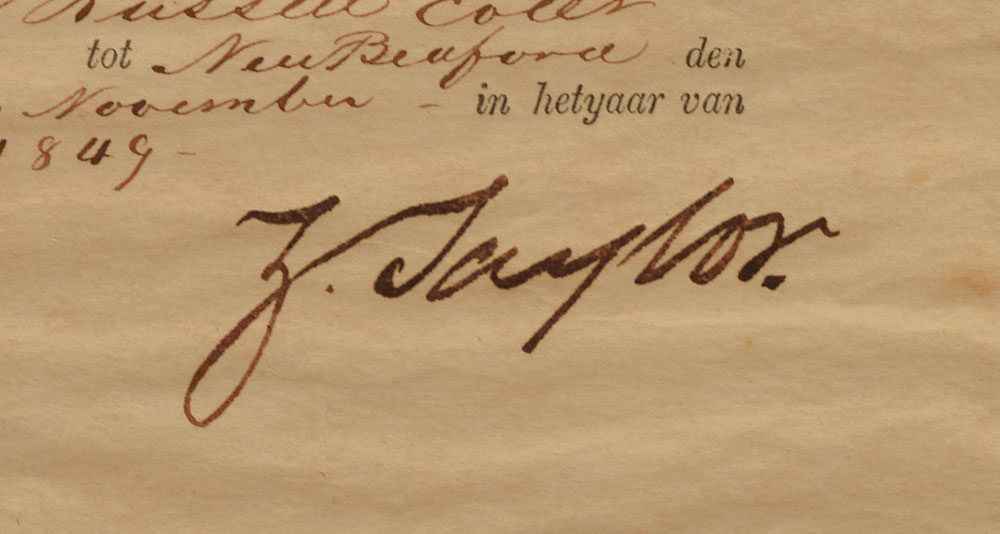 Russell
tot New Bedford den
November - in hetyaar van
1849 -
Z. Taylor.